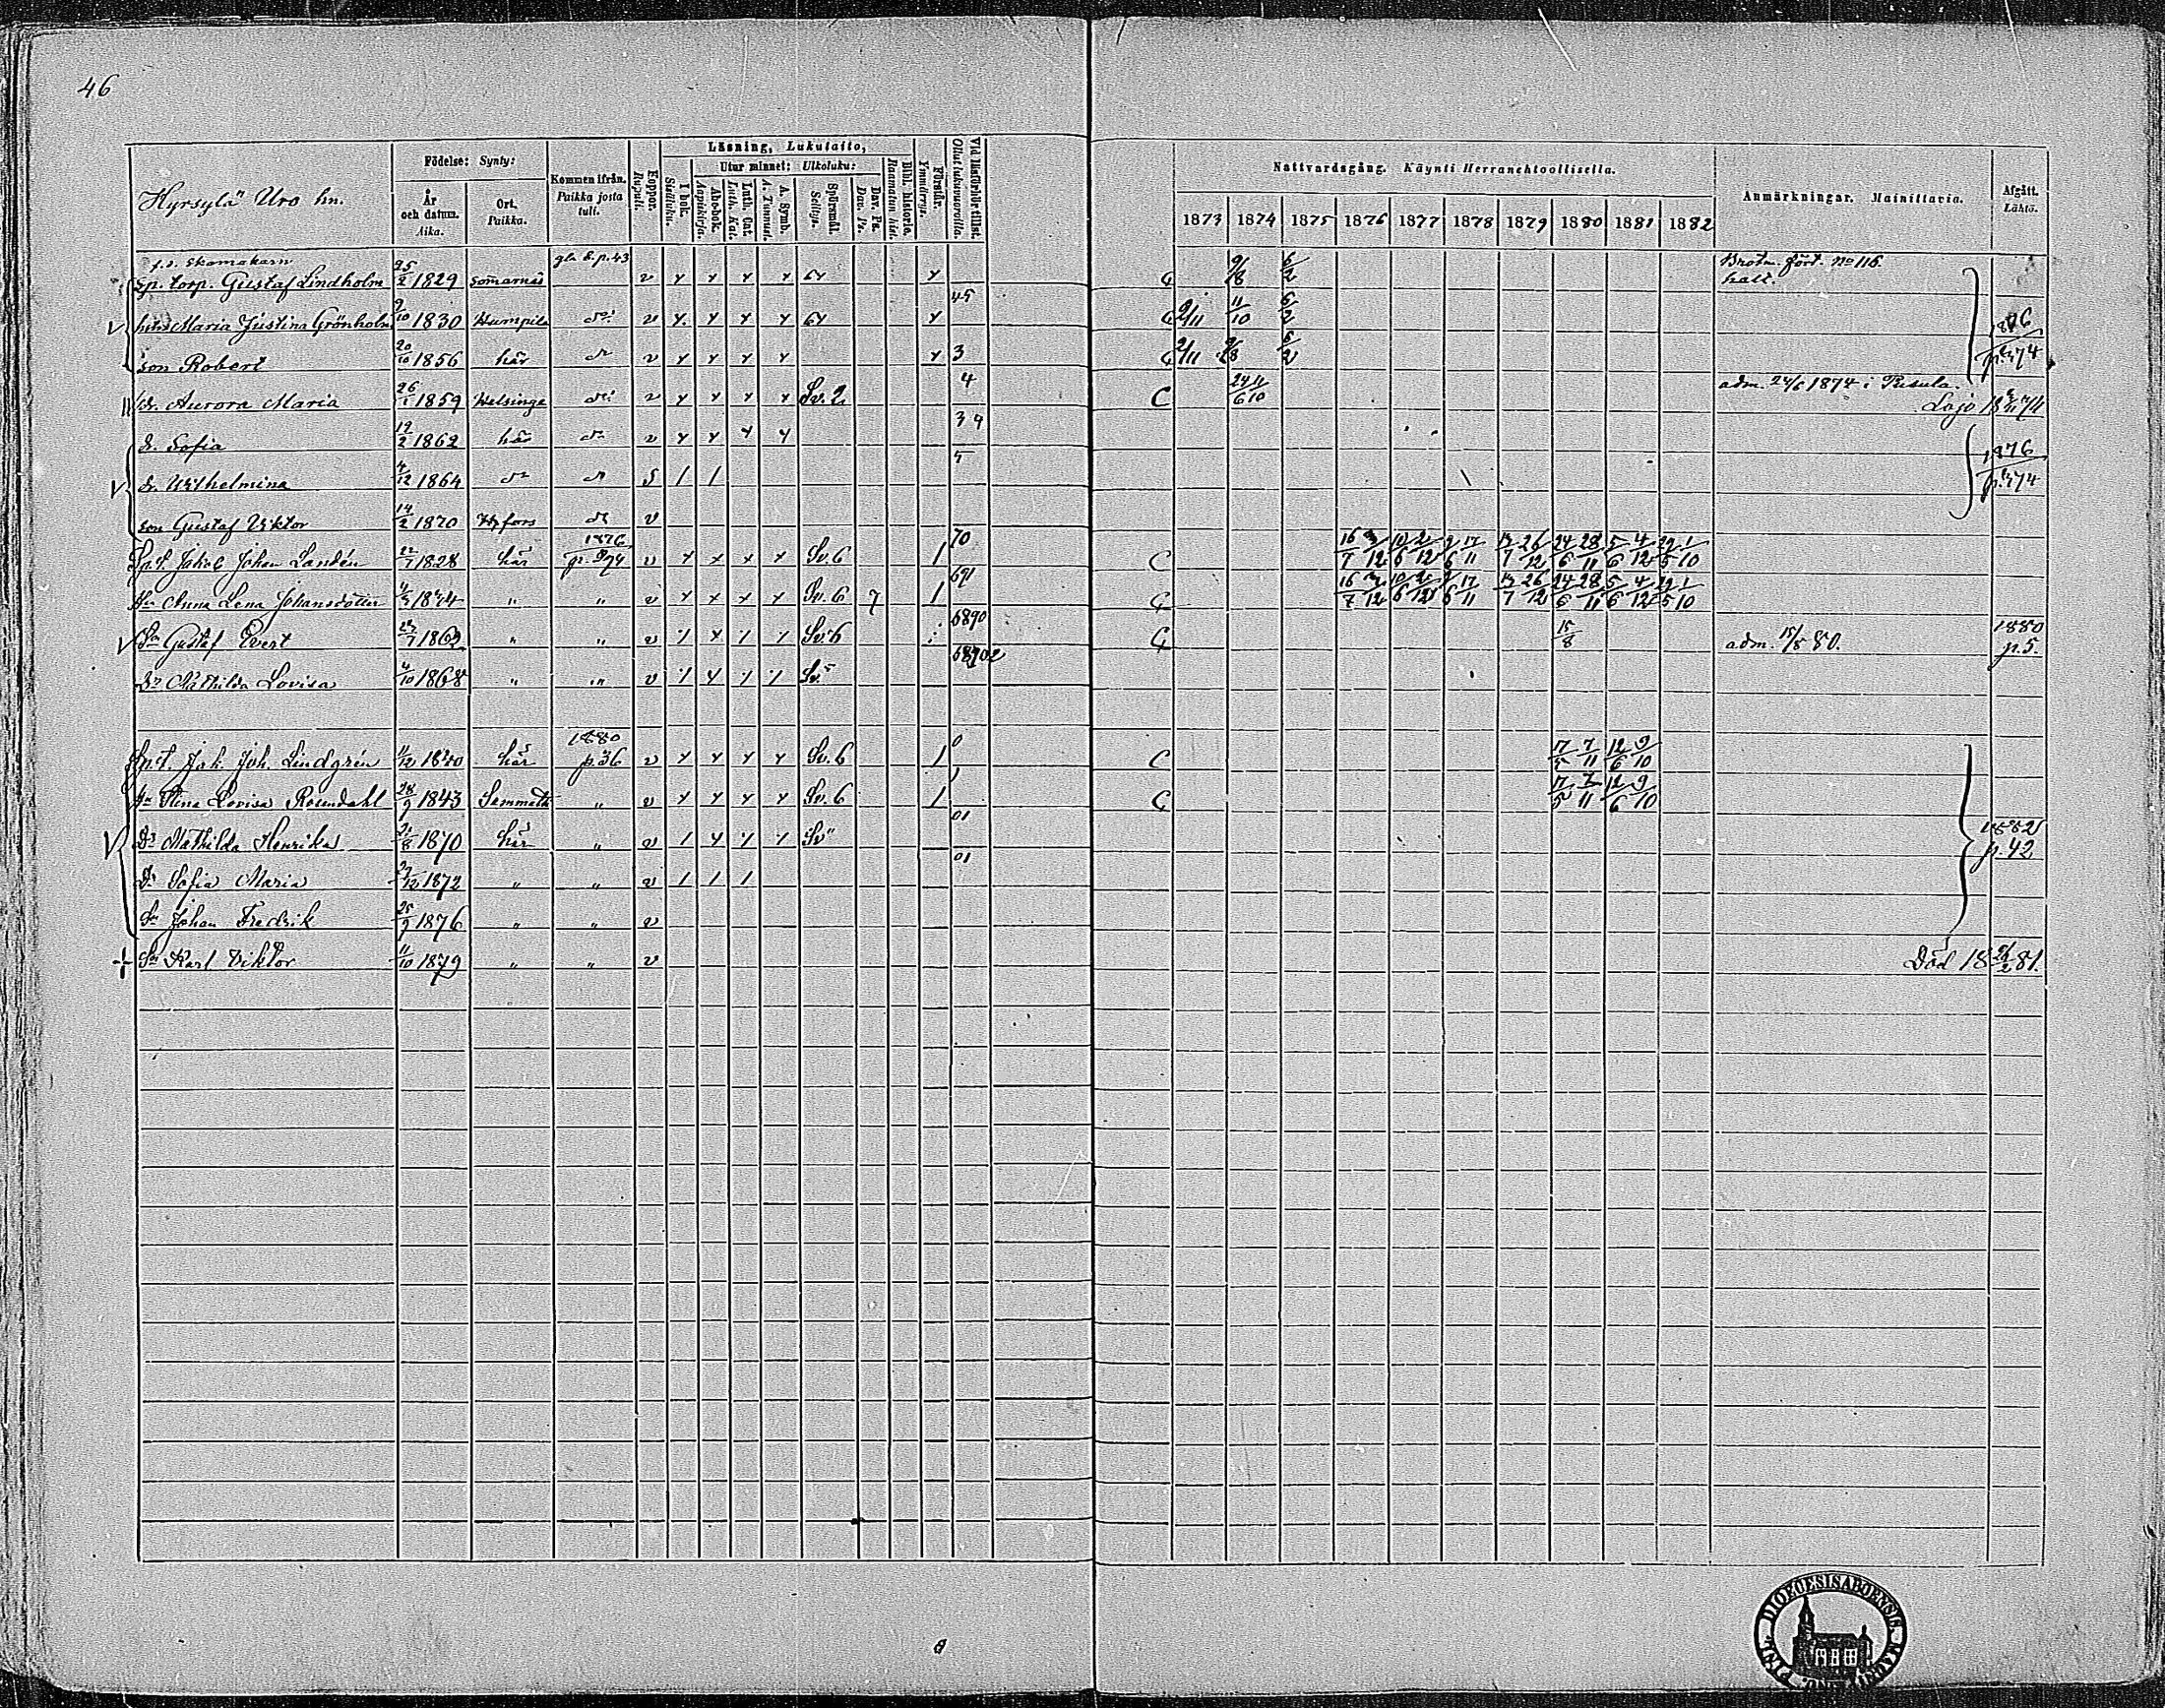 46
Hyrsylä Uro hn.
Födelse: Synty:
År och datum. Aika.
Ort. Paikka.
Kommen ifrån. Paikka josta tuli.
Koppor. Rupuli.
Läsning, Lukutaito,
I bok. Sisäluku.
Utur minnet: Ulkoluku:
Abc-bok. Aapiskirja.
Luth. Cat. Luth. Kat.
A. Symb. A. Tunnust.
Spörsmål. Selitys.
Dav. Ps. Dav. Ps.
Bibl. historia. Raamatun hist.
Förstår. Ymmärrys.
Vid läsförhör tillst. Ollut lukuvuorolla.
Nattvardsgång. Käynti Herranehtoollisella.
1873 1874 1875 1876 1877 1878 1879 1880 1881 1882
Anmärkningar. Mainittavia.
Afgått. Lähtö.
f.d. Skomakarn gla B. p. 43
Sp. torp. Gustaf Lindholm 25/2 1829 Somarnäs v 9/8 6/2 Brotm. fört. No 116.
hu Maria Justina Grönholm 9/10 1830 Humpila do v 45 2/11 11/10 6/2 1876
son Robert 20/10 1856 här do v 3 2/11 9/8 6/2 p. 74
dr. Aurora Maria 26/1 1859 Helsinge do v Sv. 2 4 C 24/6 4/10 adm. 24/6 1874 i Pusula. Lojo
d. Sofia 19/2 1862 här do v 1876
d. Wilhelmina 4/12 1864 do do 5 p. 74
son Gustaf Viktor 14/2 1870 Hfors do v
Sp.t. Jakob Johan Landén 22/7 1828 här 1876 v Sv. 6 70 C 16/7 3/12 10/6 2/12 2/6 17/11 13/7 26/12 24/6 28/11 5/6 4/12 29/5 1/10
Hu Anna Lena Johansdotter " " v Sv. 6 7 16/7 3/12 10/6 2/12 2/6 17/11 13/7 26/12 24/6 28/11 5/6 4/12 29/5 1/10
Sn Gustaf Evert " " v Sv. 6 6890 15/8 adm. 15/8 80. 1880 p. 5.
Dr Mathilda Lovisa 4/10 1868 " " v Sv.
Sp.t. Joh. Joh. Lindgrén 11/12 1840 här 1880 p. 36 v Sv. 6 0 C 17/5 7/11 12/6 9/10
Hu Stina Lovisa Rosendahl 28/9 1843 Sammatti " v Sv. 6 1 17/5 7/11 12/6 9/10
Dr Mathilda Henrika 1870 här " v Sv 01 1882 p. 42
Dr Sofia Maria 1872 " " v 01
Sn Johan Fredrik 25/9 1876 " " v
Sn Karl Viktor 11/10 1879 " " v Död